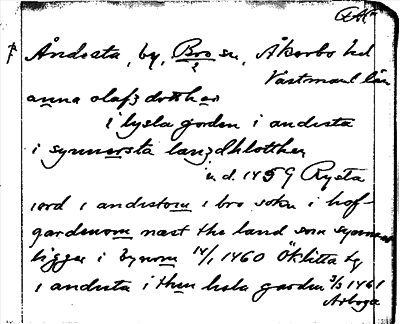 Åndesta, by, Bro sn, Åkerbo hd
Västmanl län
anna olafz dotther
i lysla garden i andesta
i synnersta landzklotthen
u.d. 1459 Rysta
iord i andestom i bro sokn i hof-
gardenom næst the land som
ligger i bynom 14/1 1460 Öklitta
i andesta i them lisla garden 3/3 1461
Arboga